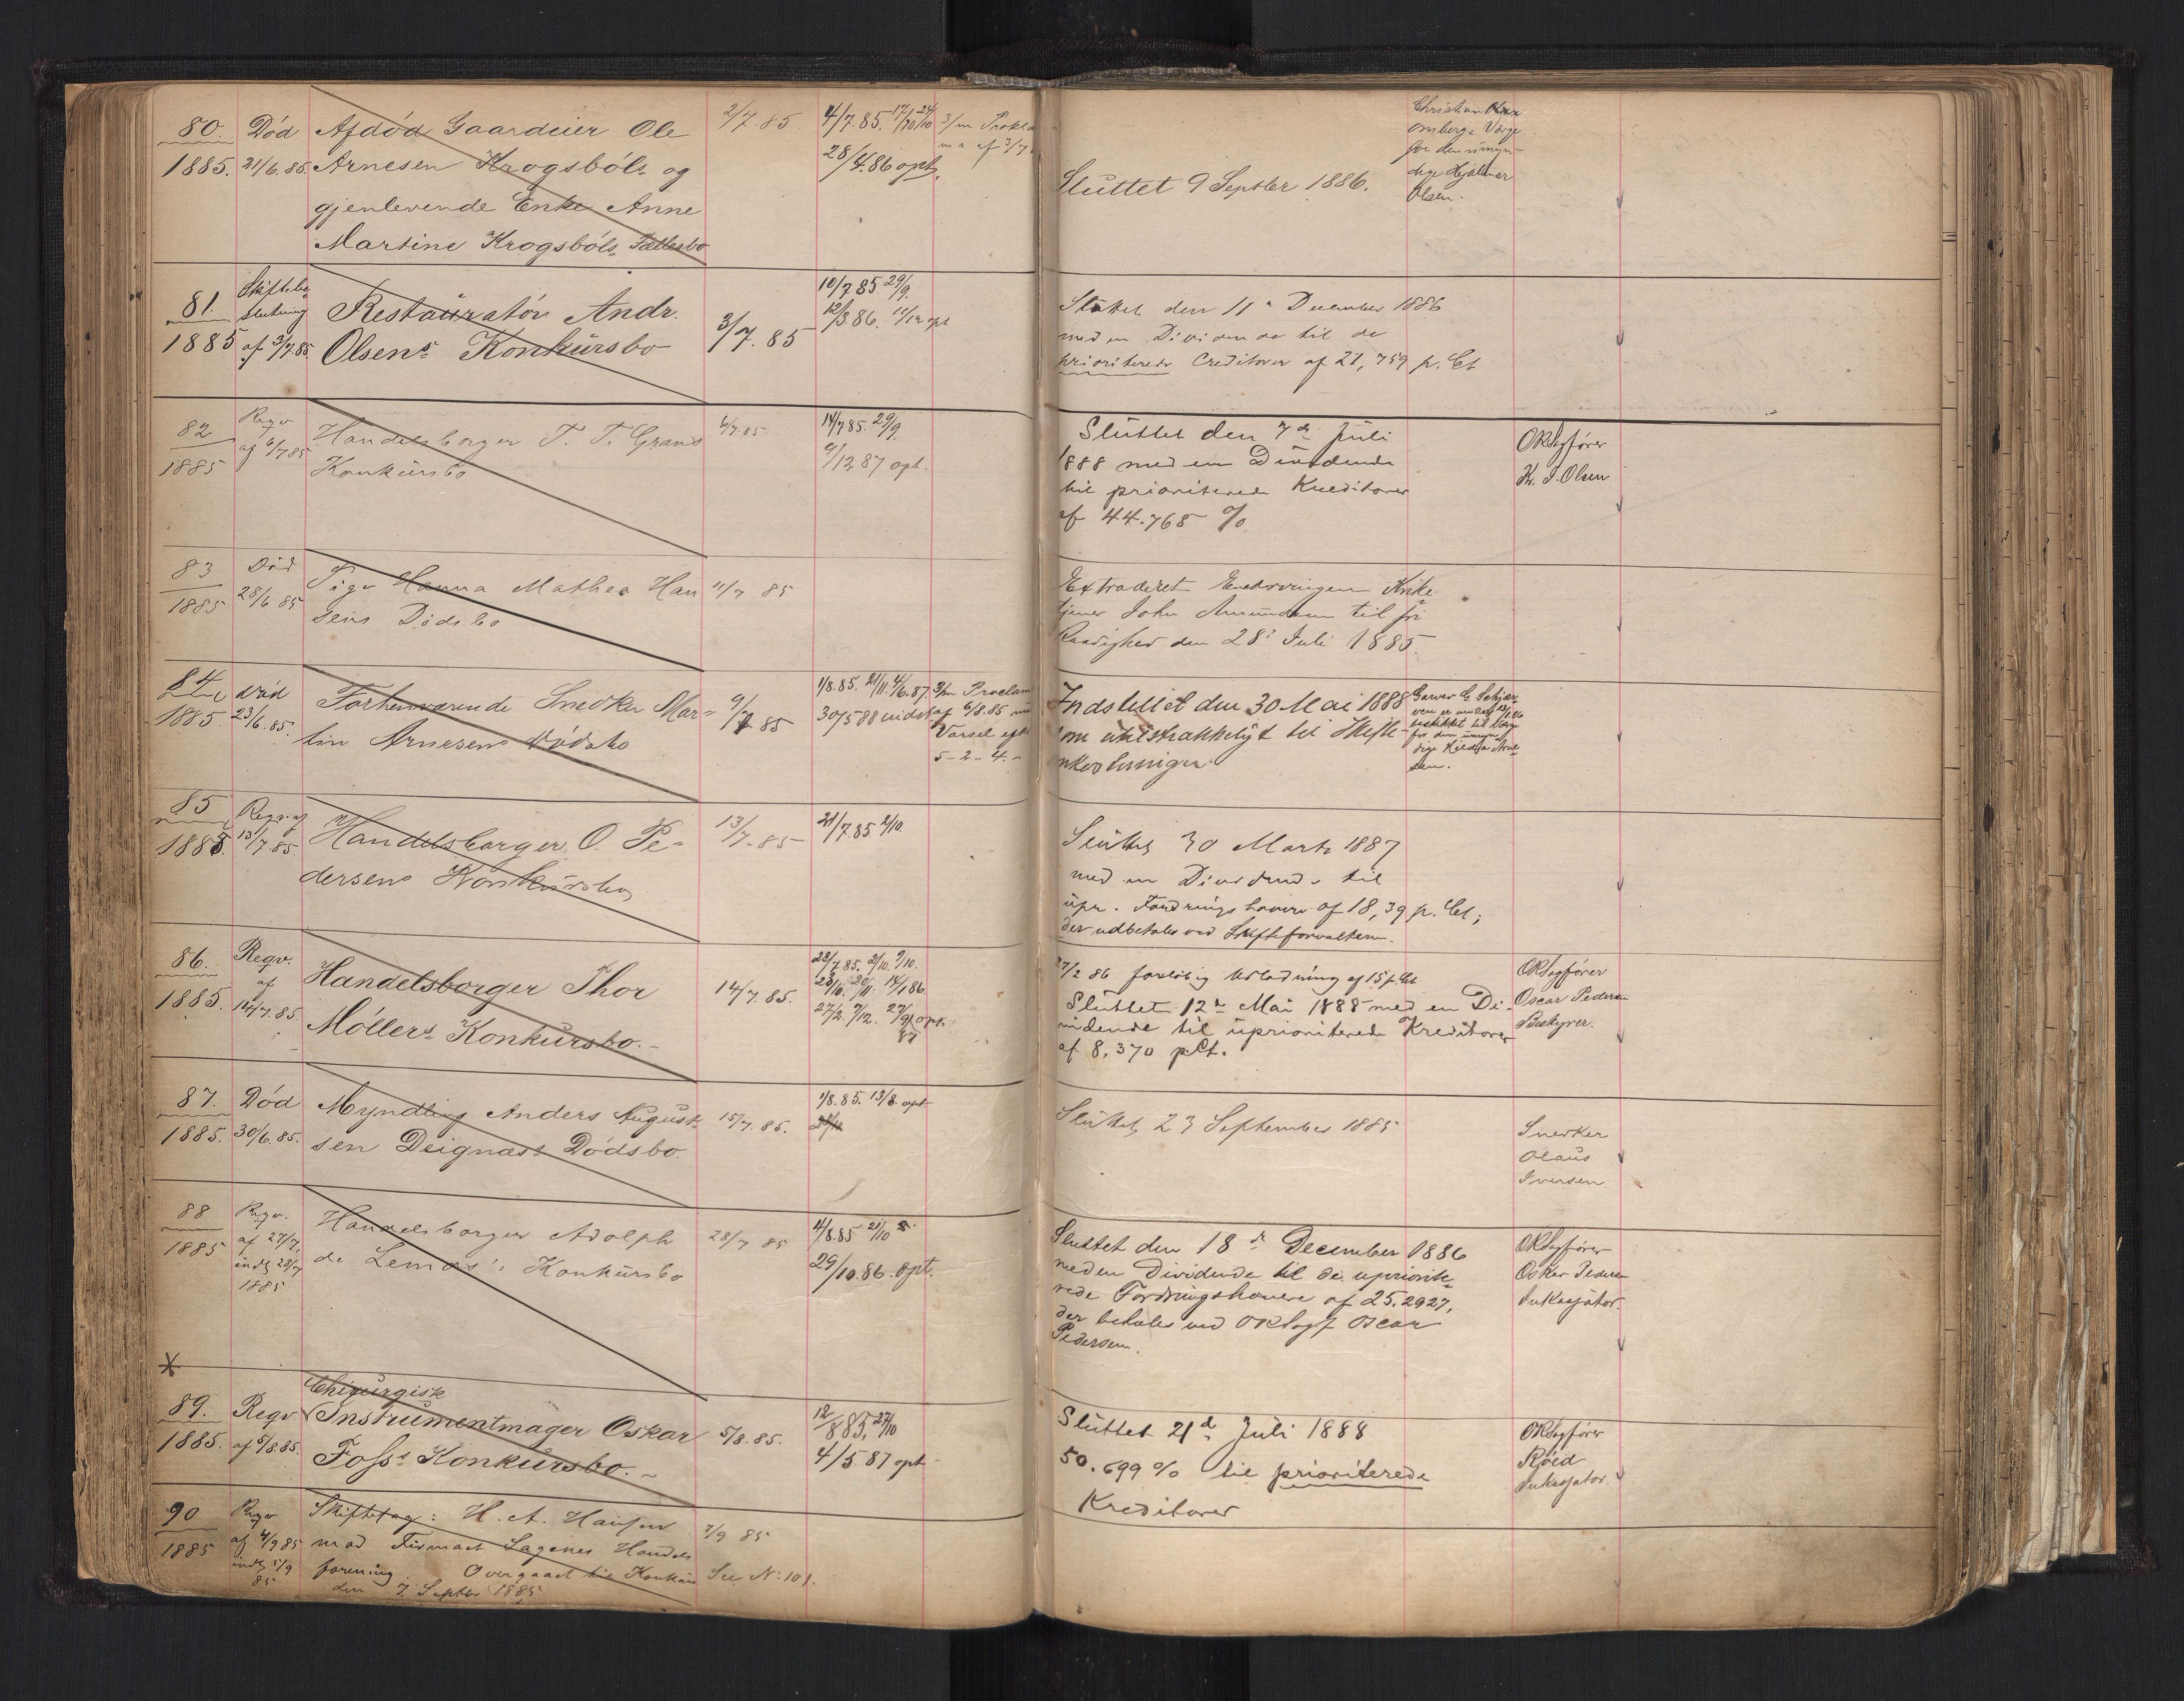 80. Død Afdød Gaardeier Ole 2/7.85. 4/7.85. 17/10 24/10 3/m Prokla
1885. 21/6.85. Arnesen Krogsböls og 28/4.86 opt. ma af 3/7
gjenlevende Enke Anne
Martine Krogsböls Fællesbo
Sluttet 9 Septber 1886.
Christian
ombergs Værge
for den umyn-
dige Hjalmar
Olsen.
81. Skiftebe
slutning Restauratör Andr. 10/7 85 29/9.
1885 af 3/7.85. Olsens Konkursbo 3/7.85 12/3 86. 11/12 opt
Sluttet den 11te December 1886
med en Dividende til de
prioriterede Creditorer af 21,759 p. Ct
82 Reqv Handelsborger T. T. Grans 6/7.85 14/7 85. 29/9.
1885 af 6/7 85 Konkursbo 9/12 87 opt.
Sluttet den 7de Juli
1888 med en Dividende
til prioriterede Kreditorer
af 44.765 %
ORSagfører
Kr. J. Olsen
83 Død Pige Hanna Mathea Han 11/7 85
1885 28/6 85 sens Dødsbo
Extraderet Enearvingen Kirke-
tjener John Amundsen til fri
Raadighed den 28de Juli 1885.
84 Død Forhenværende Snedker Mar- 9/7 85 1/8.85. 21/11. 4/6.87. 3/m Proclam
1885. 23/6.85. tin Arnesens Dødsbo 30/5 88 indst. af 6/8.85 med
Varsel efter
5-2-4.-
Indstillet den 30 Mai 1888
som utilstrækkeligt til Skifte-
omkostninger.
Garver C. Schjer
ven er under 12/1 86
beskikket til Værge
for den umyn
dige Hilda Arne
sen.
85 Reqv. af Handelsborger O. Pe- 13/7-85 21/7.85 2/10.
1885. 13/7 85. dersens Konkursbo
Sluttet 30 Marts 1887
med en Dividende til
upr. Fordringshavere af 18,39 p. Ct;
der udbetales ved Skifteforvalteren.
86. Reqv. Handelsborger Thor 14/7.85. 22/7 85. 2/10. 9/10.
1885. af 14/7.85. Möllers Konkursbo. 23/10. 20/11. 14/1 86
27/2. 7/12. 27/9 opt.
87
27/2 86 foreløbig Udlodning af 15 p. Ct
Sluttet 12te Mai 1888 med en Di-
vidende til uprioriterede Kreditorer
af 8,370 pCt.
ORSagfører
Oscar Pedersen
Bestyrer.
87. Död Myndling Anders August- 15/7.85. 1/8.85. 13/8 opt
1885. 30/6.85. sen Deignæs's Dödsbo.
Sluttet 23 September 1885
Snedker
Olaus
Iversen
88 Reqv. Handelsborger Adolph 28/7 85 4/8.85 21/10
1885 af 27/7, de Lemos's Konkursbo 29/10.86. opt.
indk 28/7
1885
Sluttet den 18de December 1886
med en Dividende til de uprioriter-
rede Fordringshavere af 25.2927,
der betales ved ORSagf Oscar
Pedersen.
ORSagfører
Oskar Pedersen
Inkassator.
89. Reqv Chirurgisk
Instrumentmager Oskar 5/8.85. 12/8 85, 27/10
1885. af 5/8.85. Foss's Konkursbo. 4/5.87 opt
Sluttet 21de Juli 1888
50.699 % til prioriterede
Kreditorer
ORSagfører
Röed
Inkassator.
90 Reqv Skiftesag: H. A. Hansen 7/9 85
1885 af 4/9 85 mod Firmaet Sagenes Handels
indk 5/9 85 forening. Overgaaet til Konkurs See No. 101.
den 7 Septbr 1885